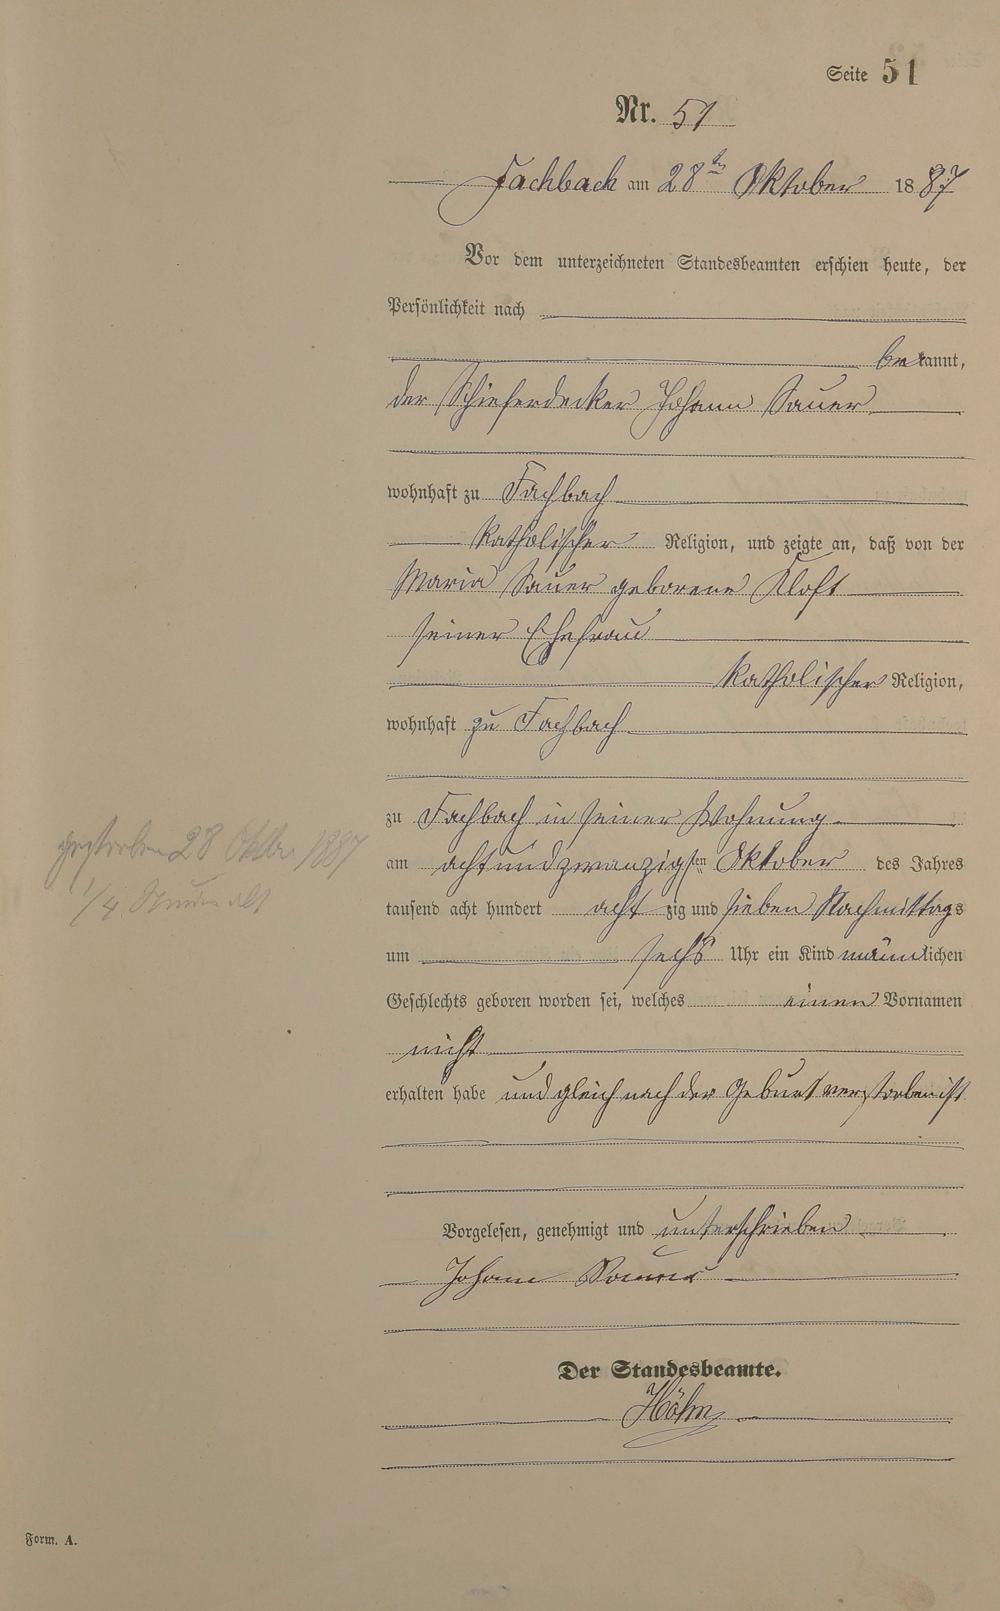 Seite 51
Nr. 51
Fachbach am 28ten Oktober 1887
Vor dem unterzeichneten Standesbeamten erschien heute, der
Persönlichkeit nach
bekannt,
der Schieferdecker Johann Sauer
wohnhaft zu Fachbach
katholischer Religion, und zeigte an, daß von der
Maria Sauer geborene Kloft
seiner Ehefrau
katholischer Religion,
wohnhaft zu Fachbach
zu Fachbach in seiner Wohnung
am achtundzwanzigsten Oktober des Jahres
tausend acht hundert achtzig und sieben Nachmittags
um sechs Uhr ein Kind männlichen
Geschlechts geboren worden sei, welches einen Vornamen
nicht
erhalten habe und gleich nach der Geburt verstorben ist
Vorgelesen, genehmigt und unterschrieben
Johann Sauer
Der Standesbeamte.
Höhn
gestorben 28 Oktbr 1887
1/4 Stunde alt
Form. A.